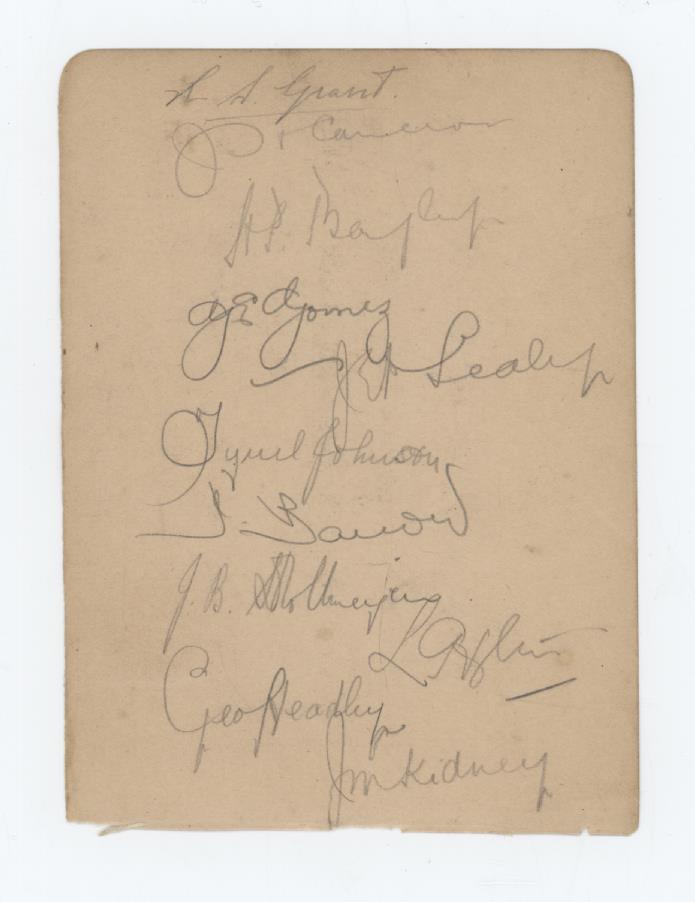 R. S. Grant.
J H Cameron
H P. Bayley
G E Gomez
J E D Sealy
Tyrell Johnson
I. Barrow
J. B. Stollmeyer
Geo Headley
J M Kidney